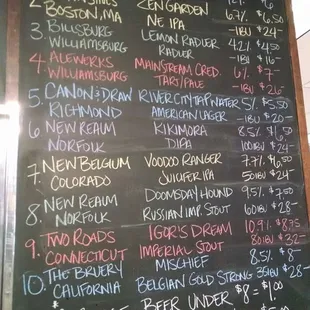 BOSTON, MA ZEN GARDEN 6.7% $6.50
NE IPA -IBU $24-
3. BILLSBURG LEMON RADLER 4.2% $4.50
WILLIAMSBURG RADLER -IBU $16-
4. ALEWERKS MAINSTREAM CRED. 6% $7-
WILLIAMSBURG TART/PALE -IBU $26-
5. CANON & DRAW RIVER CITY TAP WATER 5% $5.50
RICHMOND AMERICAN LAGER -IBU $20-
6. NEW REALM KIKIMORA 8.5%
NORFOLK DIPA 100IBU $24-
7. NEW BELGIUM VOODOO RANGER 7.7% $6.50
COLORADO JUICIFER IPA 50IBU $24-
8. NEW REALM DOOMSDAY HOUND 9.5% $7.50
NORFOLK RUSSIAN IMP. STOUT 60IBU $28-
9. TWO ROADS IGOR'S DREAM 10.9% $8.75
CONNECTICUT IMPERIAL STOUT 80IBU $32-
10. THE BRUERY MISCHIEF 8.5% $8-
CALIFORNIA BELGIAN GOLD STRONG 35IBU $28-
BEER UNDER $8 = $1.00